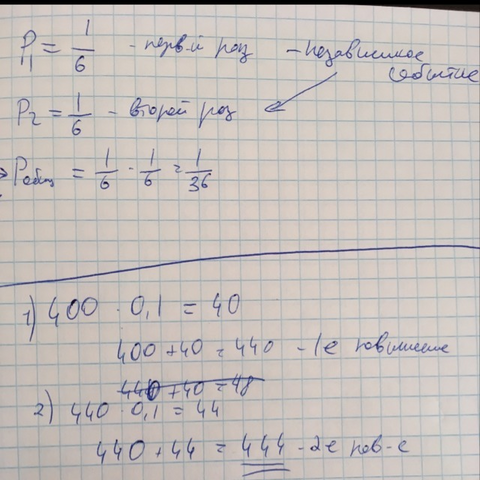 P₁ = 1/6 - первый раз - независимое событие
P₂ = 1/6 - второй раз
Pобщ = 1/6 · 1/6 = 1/36
1) 400 · 0,1 = 40
400 + 40 = 440 - 1е повышение
440 + 40 = 48
2) 440 · 0,1 = 44
440 + 44 = 444 - 2е пов-е